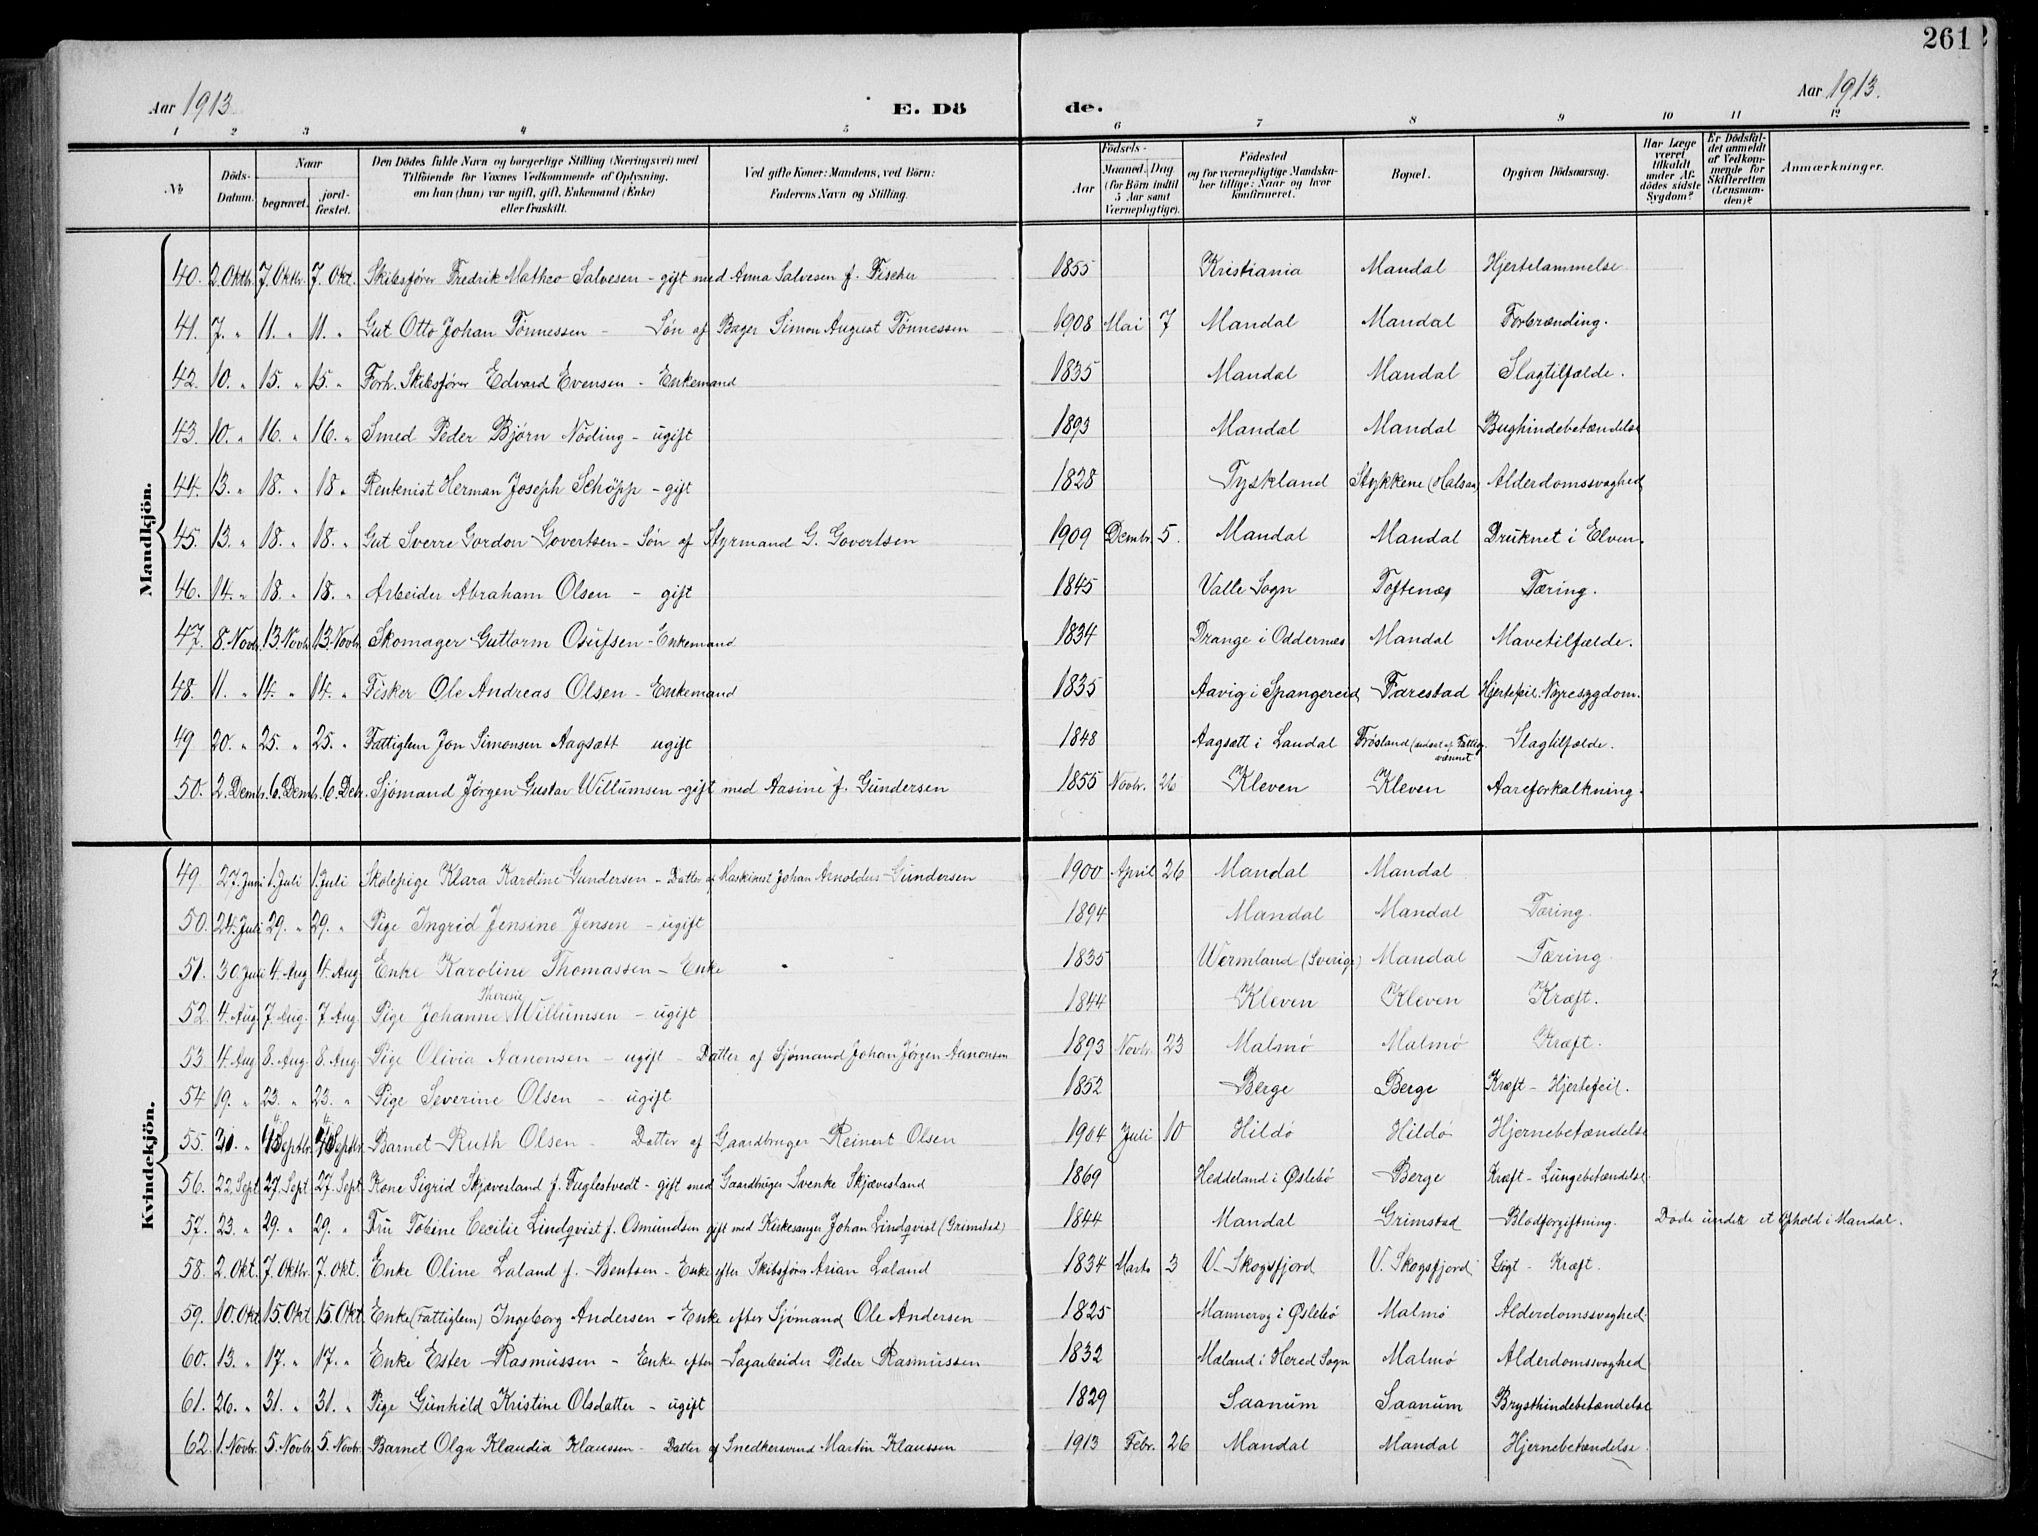 261
Aar 1913. E. Dö de. Aar 1913.
1 2 3 4 5 6 7 8 9 10 11 12
No Döds-Datum. Naar begravet. jordfæstet. Den Dödes fulde Navn og borgerlige Stilling (Næringsvei) med Tilföiende for Voxnes Vedkommende af Oplysning, om han (hun) var ugift, gift, Enkemand (Enke) eller fraskilt. Ved gifte Koner: Mandens, ved Börn: Faderens Navn og Stilling. Födsels- Aar Maaned. Dag (for Börn indtil 5 Aar samt Værnepligtige). Födested og for værnepligtige Mandskaber tillige: Naar og hvor konfirmeret. Bopæl. Opgiven Dödsaarsag. Har Læge været tilkaldt under Afdödes sidste Sygdom? Er Dödsfaldet anmeldt af Vedkommende for Skifteretten (Lensmanden)? Anmærkninger.
Mandkjön.
40. 2 Oktbr. 7. Oktbr. 7. Okt. Skibsfører Fredrik Matheo Salvesen - gift med Anna Salvesen f. Fischer 1855 Kristiania Mandal Hjertelammelse
41. 7. " 11. " 11. " Gut Otto Johan Tønnessen - Søn af Bager Simon August Tønnessen 1908 Mai 7 Mandal Mandal Forbrænding.
42. 10. " 15. " 15. " Forh. Skibsfører Edvard Evensen - Enkemand 1835 Mandal Mandal Slagtilfælde.
43. 10. " 16. " 16. " Smed Peder Bjørn Nøding - ugift 1893 Mandal Mandal Bughindebetændelse
44. 13. " 18. " 18 " Rentenist Herman Joseph Schöpp - gift 1828 Tyskland Stykkene (Halsaa) Alderdomssvaghed
45. 13. " 18. " 18. " Gut Sverre Gordon Govertsen - Søn af Styrmand G. Govertsen 1909 Dembr. 5. Mandal Mandal Druknet i Elven.
46. 14. " 18. " 18. " Arbeider Abraham Olsen - gift 1845 Valle Sogn Toftenæs Tæring.
47. 8. Novbr. 13. Novbr. 13. Novbr. Skomager Guttorm Osufsen - Enkemand 1834 Drange i Oddernæs Mandal Mavetilfælde.
48. 11. " 14. " 14. " Fisker Ole Andreas Olsen - Enkemand 1835 Aavig i Spangereid Farestad Hjertefeil. Nyresygdom.
49 20. " 25. " 25. " Fattiglem Jon Simonsen Aagsætt ugift 1848 Aagsætt i Laudal Frøsland (andsat af Fattigvæsnet
50. 2. Dembr. 6. Dembr. 6. Debr. Sjømand Jørgen Gustav Willumsen - gift med Aasine f. Gundersen 1855 Novbr. 26 Kleven Kleven Aareforkalkning.
Kvindekjön.
49 27. Juni 1. Juli 1. Juli Skolepige Klara Karoline Gundersen - Datter af Maskinist Johan Arnoldus Gundersen 1900 April 26 Mandal Mandal
50. 24. Juli 29. " 29. " Pige Ingrid Jensine Jensen - ugift 1894 Mandal Mandal Tæring.
51. 30 Juli 4. Aug 4. Aug. Enke Karoline Thomassen - Enke 1835 Wermland (Sverige) Mandal Tæring.
52. 4. Aug. 7. Aug. 7. Aug. Pige Johanne Therese Willumsen - ugift 1844 Kleven Kleven Kræft.
53 4. Aug 8. Aug 8. Aug. Pige Olivia Aanonsen - ugift - Datter af Sjømand Johan Jørgen Aanonsen 1893 Novbr. 23 Malmø Malmø Kræft.
54 19. " 23. " 23. " Pige Severine Olsen - ugift 1852 Berge Berge Kræft - Hjertefeil.
55. 30. " Septbr. Septbr. Barnet Ruth Olsen - Datter af Gaardbruger Reinert Olsen 1904 Juli 10 Hildø Hildø Hjernebetændelse
56. 22. Sept 27. Sept 27. Sept Kone Sigrid Skjæverland f. Fuglestvedt - gift med Gaardbruger Svenke Skjæveland 1869 Heddeland i Øslebø Berge Kræft - Lungebetændelse
57. 23. " 29. " 29. " Fru Tobine Cecilie Lindqvist f. Osmundsen gift med Kirkesanger Johan Lindqvist (Grimstad) 1844 Mandal Grimstad Blodforgiftning. Døde under et Ophold i Mandal.
58. 2. Okt. 7. Oktbr. 7. Okt. Enke Oline Laland f. Bentsen - Enke efter Skibsfører Arian Laland 1834 Marts 3 V. Skogsfjord V. Skogsfjord Gigt - Kræft.
59. 10. Okt 15. Okt 15. Okt Enke (Fattiglem) Ingeborg Andersen - Enke efter Sjømand Ole Andersen 1825 i Øslebø Malmø Alderdomssvaghed
60. 13. " 17. " 17. " Enke Ester Rasmussen - Enke efter Sagarbeider Peder Rasmussen 1832 Mæland i Hered Sogn Malmø Alderdomssvaghed
61. 26. " 31. " 31. " Pige Gunhild Kristine Olsdatter - ugift 1829 Saanum Saanum Brysthindebetændelse
62. 1. Novbr. 5. Novbr. 5. Novbr. Barnet Olga Klaudia Klaussen - Datter af Snedkersvend Martin Klaussen 1913 Febr. 26 Mandal Mandal Hjernebetændelse